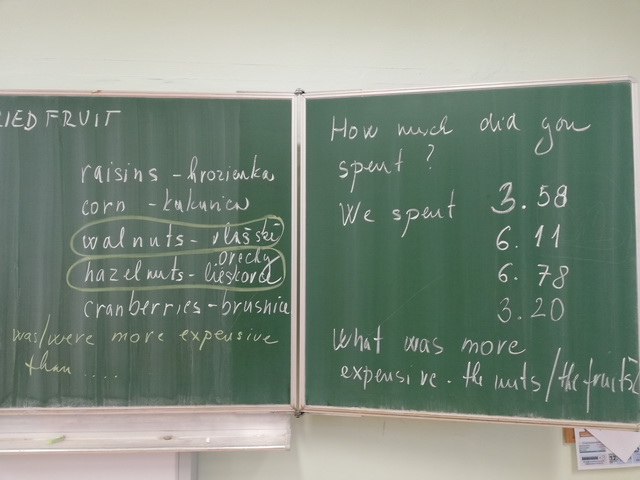 RIED FRUIT
raisins - hrozienka
corn - kukurica
walnuts - vlašské
orechy
hazelnuts - lieskové
cranberries - brusnice
was/were more expensive
than ....
How much did you
spent ?
We spent 3.58
6.11
6.78
3.20
What was more
expensive. the nuts / the fruits?